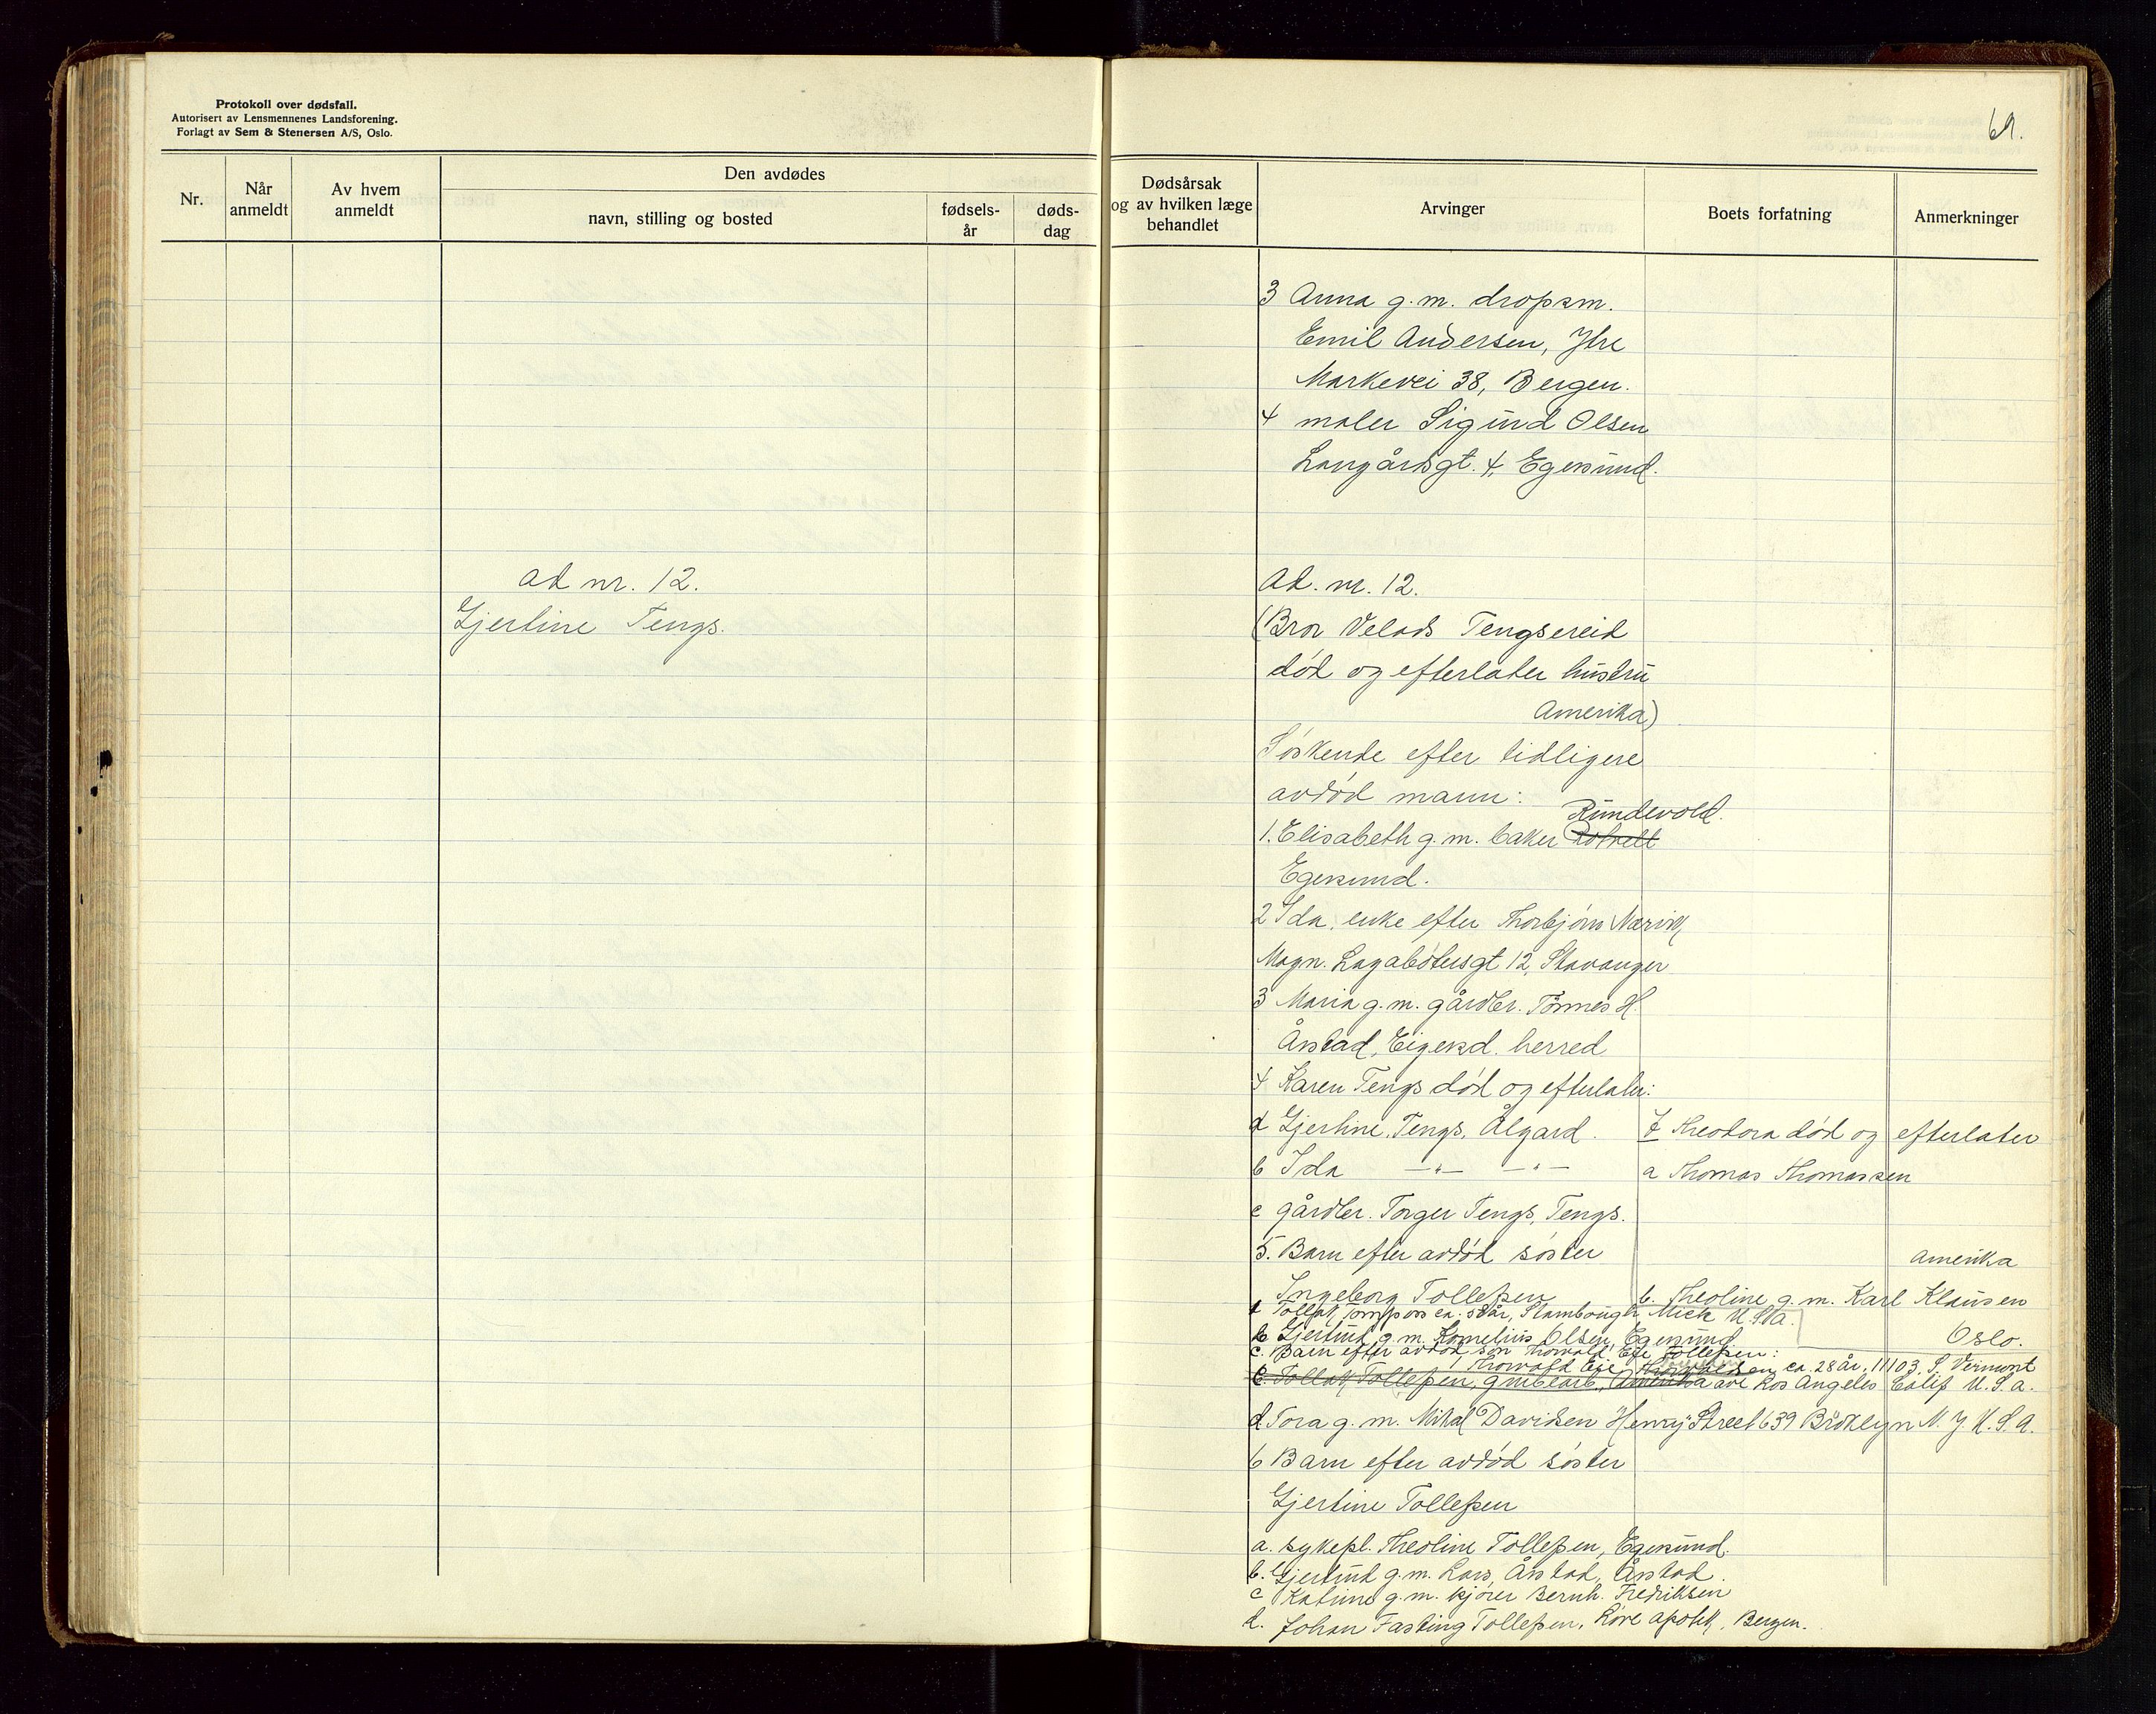 Protokoll over dødsfall.
Autorisert av Lensmennenes Landsforening.
Forlagt av Sem & Stenersen A/S, Oslo.
69.
Nr.
Når anmeldt
Av hvem anmeldt
Den avdødes
navn, stilling og bosted
fødsels-år
døds-dag
Dødsårsak og av hvilken læge behandlet
Arvinger
Boets forfatning
Anmerkninger
3 Anna g.m. dropsm.
Emil Andersen, Ytre
Markevei 38, Bergen.
4 maler Sigurd Olsen
Langårdsgt. 4, Egersund.
ad nr. 12.
Gjertine Tengs.
Ad. nr. 12.
(Bror Velads Tengsereid
død og efterlater hustru
Amerika)
Søskende efter tidligere
avdød mann:
Rundevold.
1. Elisabeth g.m. baker
Egersund.
2 Ida, enke efter Thorbjørn Nærvik,
Magn. Lagabøtersgt 12, Stavanger
3 Maria g.m. gårdbr. Tønnes H.
Årstad, Eigersd. herred
4 Karen Tengs død og efterlater:
a Gjertine Tengs, Ålgard.
b Ida —"— —"—
c gårdbr. Torger Tengs, Tengs.
5. Barn efter avdød søster
Ingeborg Tollefsen
a Tollak Tompson ca. 58 år, Stambough Mick U.S.A.
b Gjertrud g.m. Kornelius Olsen, Egersund
c. Barn efter avdød søn Thorvald Eie Tollefsen:
Thorvald Eie Thorvaldsen ca. 28 år, 11103 S. Vermont
c. Tollak Tollefsen, grubearb., Amerika ave Los Angeles Calif U.S.A.
d. Tora g.m. Mikal Davidsen Henry Street 639 Broklyn N.Y. U.S.A.
6 Barn efter avdød søster
Gjertine Tollefsen
a. sykepl. Theoline Tollefsen, Egersund.
b. Gjertrud g.m. Lars Årstad, Årstad.
c Katrine g.m. kjører Bernh. Fredriksen
d. Johan Fasting Tollefsen, Løve apotek, Bergen.
7 Theodora død og efterlater
a Thomas Thomassen
Amerika
b. Theoline g.m. Karl Klausen
Oslo.